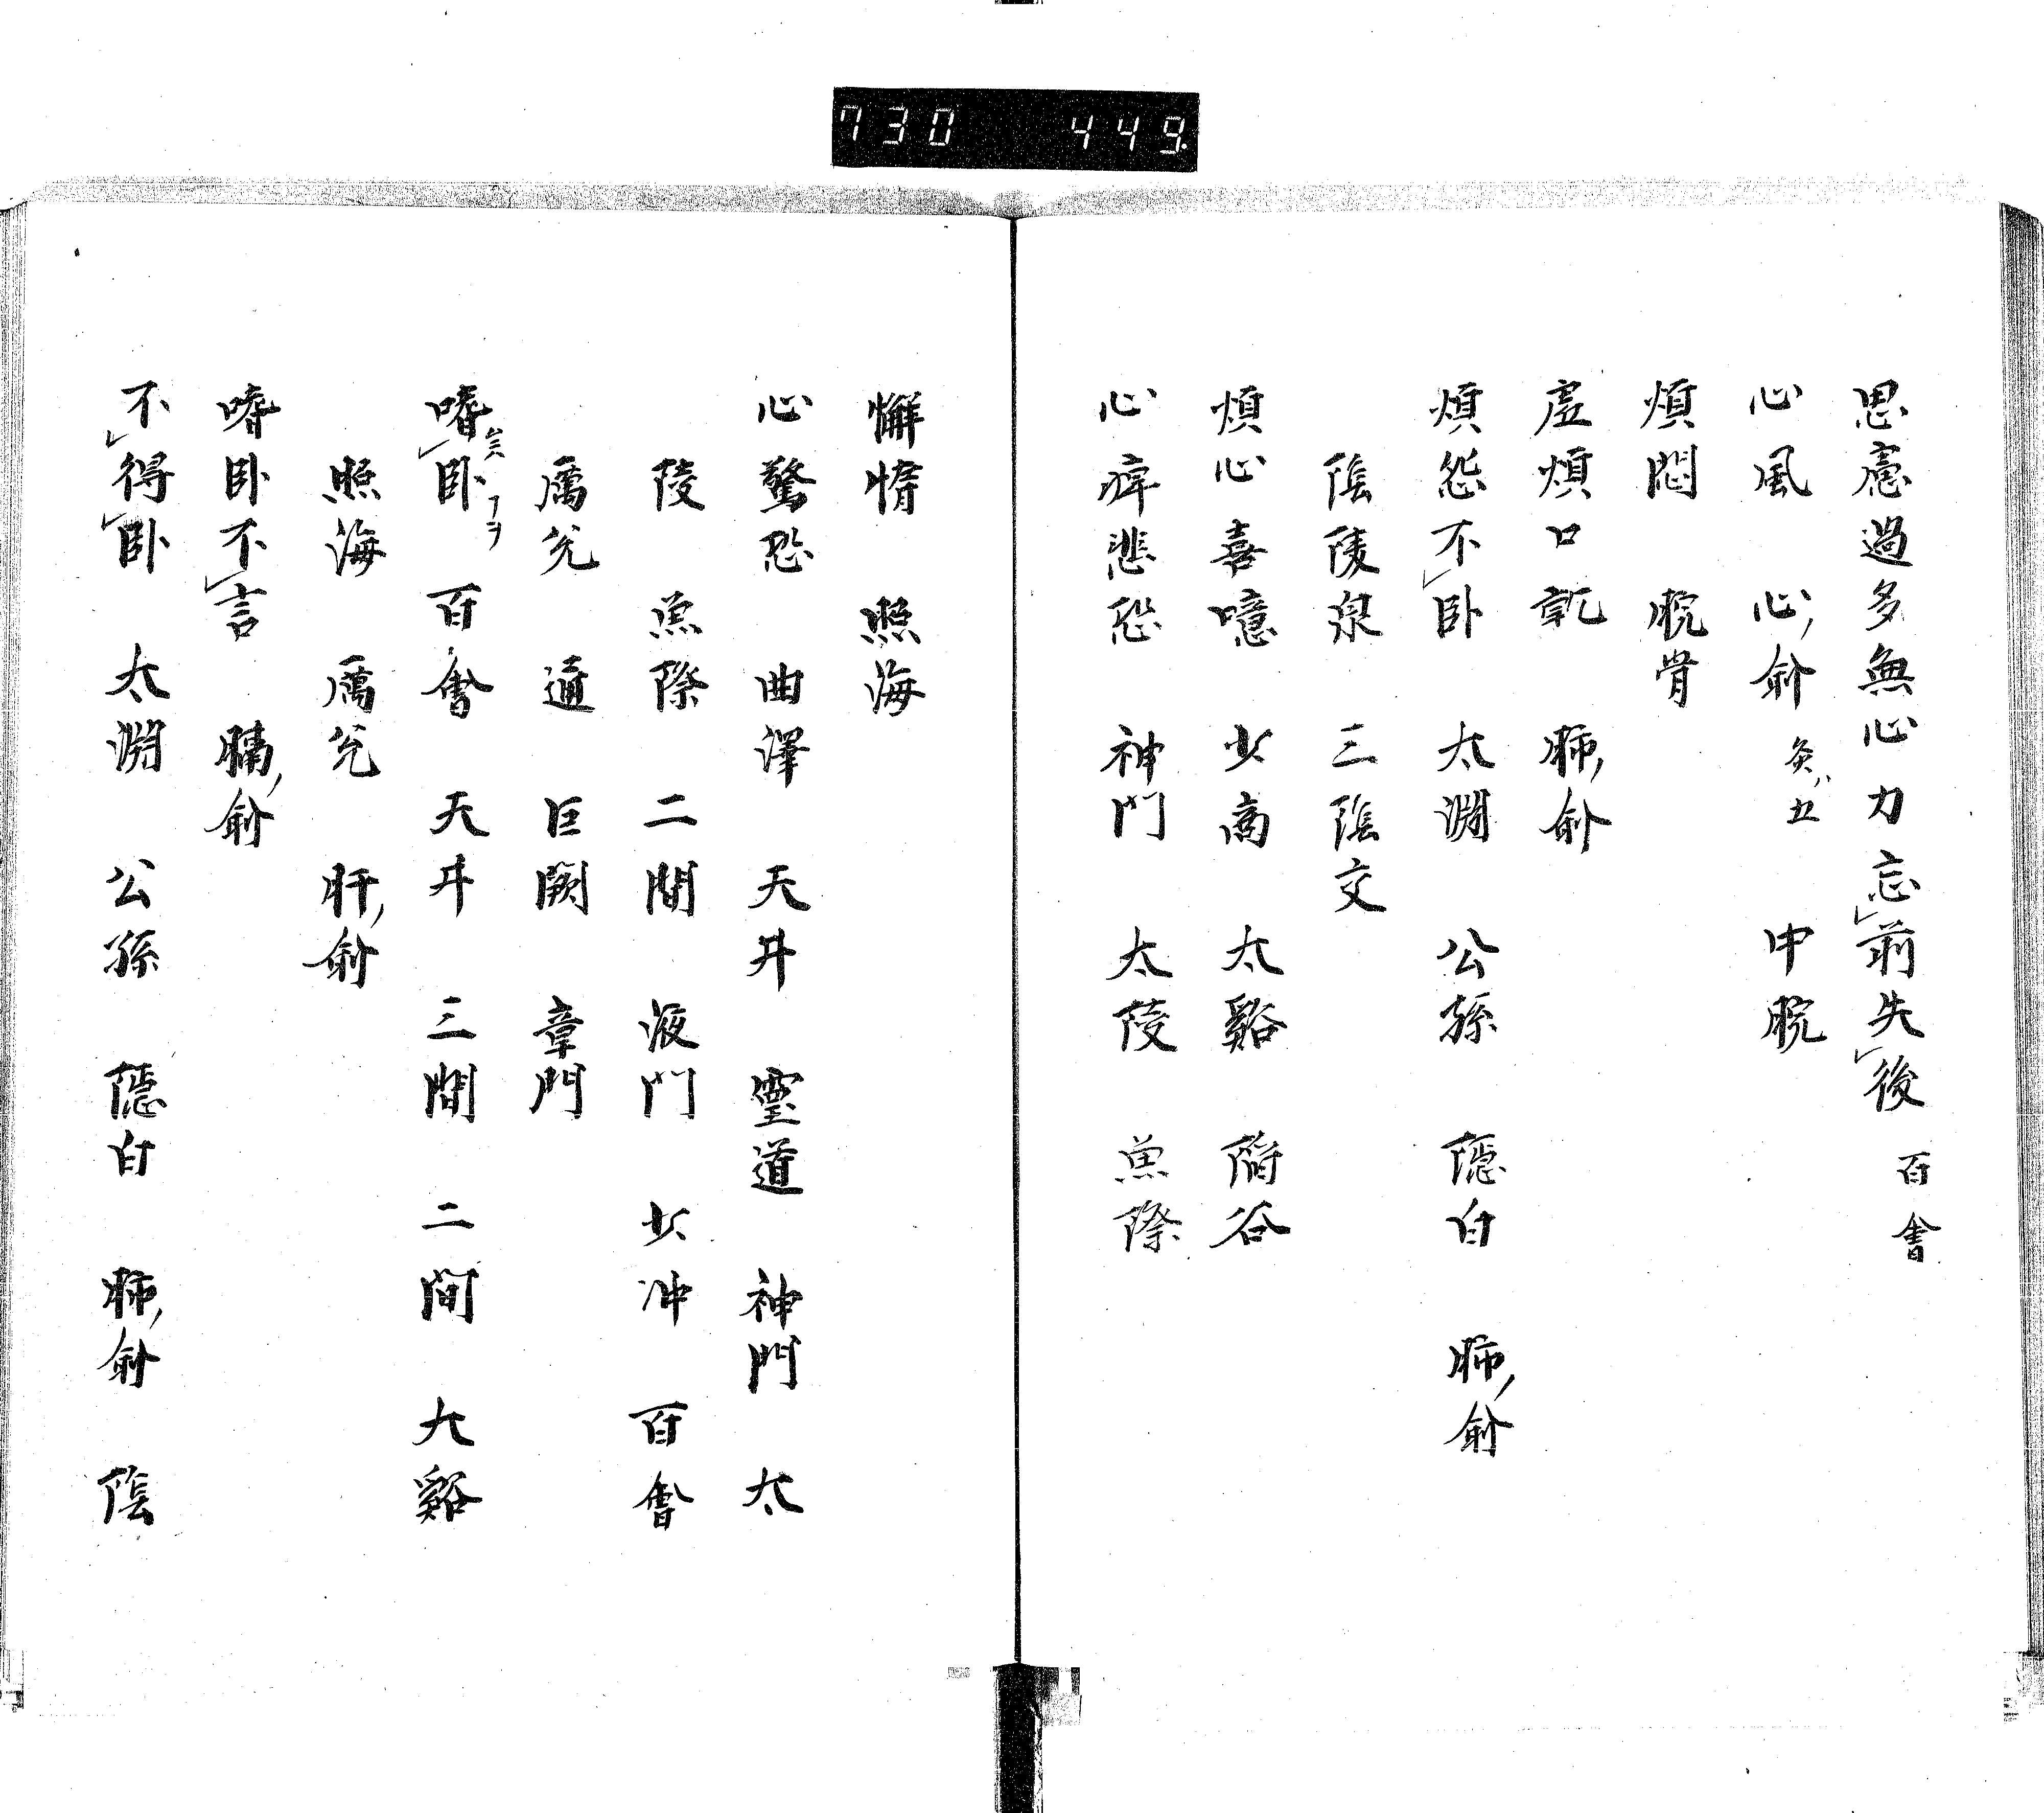 730 449.
思慮過多無心力忘前失後 百會
心風 心俞 灸五 中脘
煩悶 腕骨
虚煩口乾 肺俞
煩怨不卧 太淵 公孫 隱白 肺俞
陰陵泉 三陰交
煩心喜噫 少商 太谿 陷谷
心痺悲恐 神門 太陵 魚際
懈惰 照海
心驚恐 曲澤 天井 靈道 神門 太
陵 魚際 二間 液門 少冲 百會
厲兌 通 巨闕 章門
嗜卧 百會 天井 三間 二間 大谿
照海 厲兌 肝俞
嗜卧不言 膈俞
不得卧 太淵 公孫 隱白 肺俞 陰